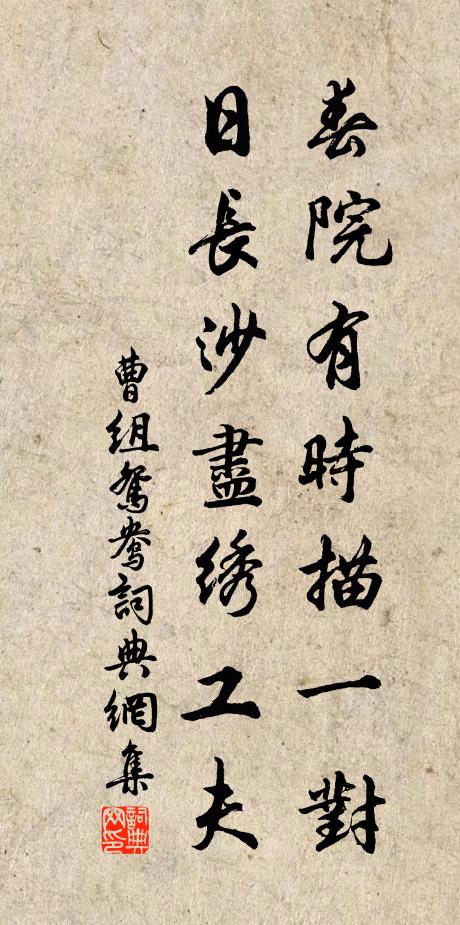 春院有時描一對
日長沙盡綉工夫
曹組鴛鴦詞典網集
詞典網印